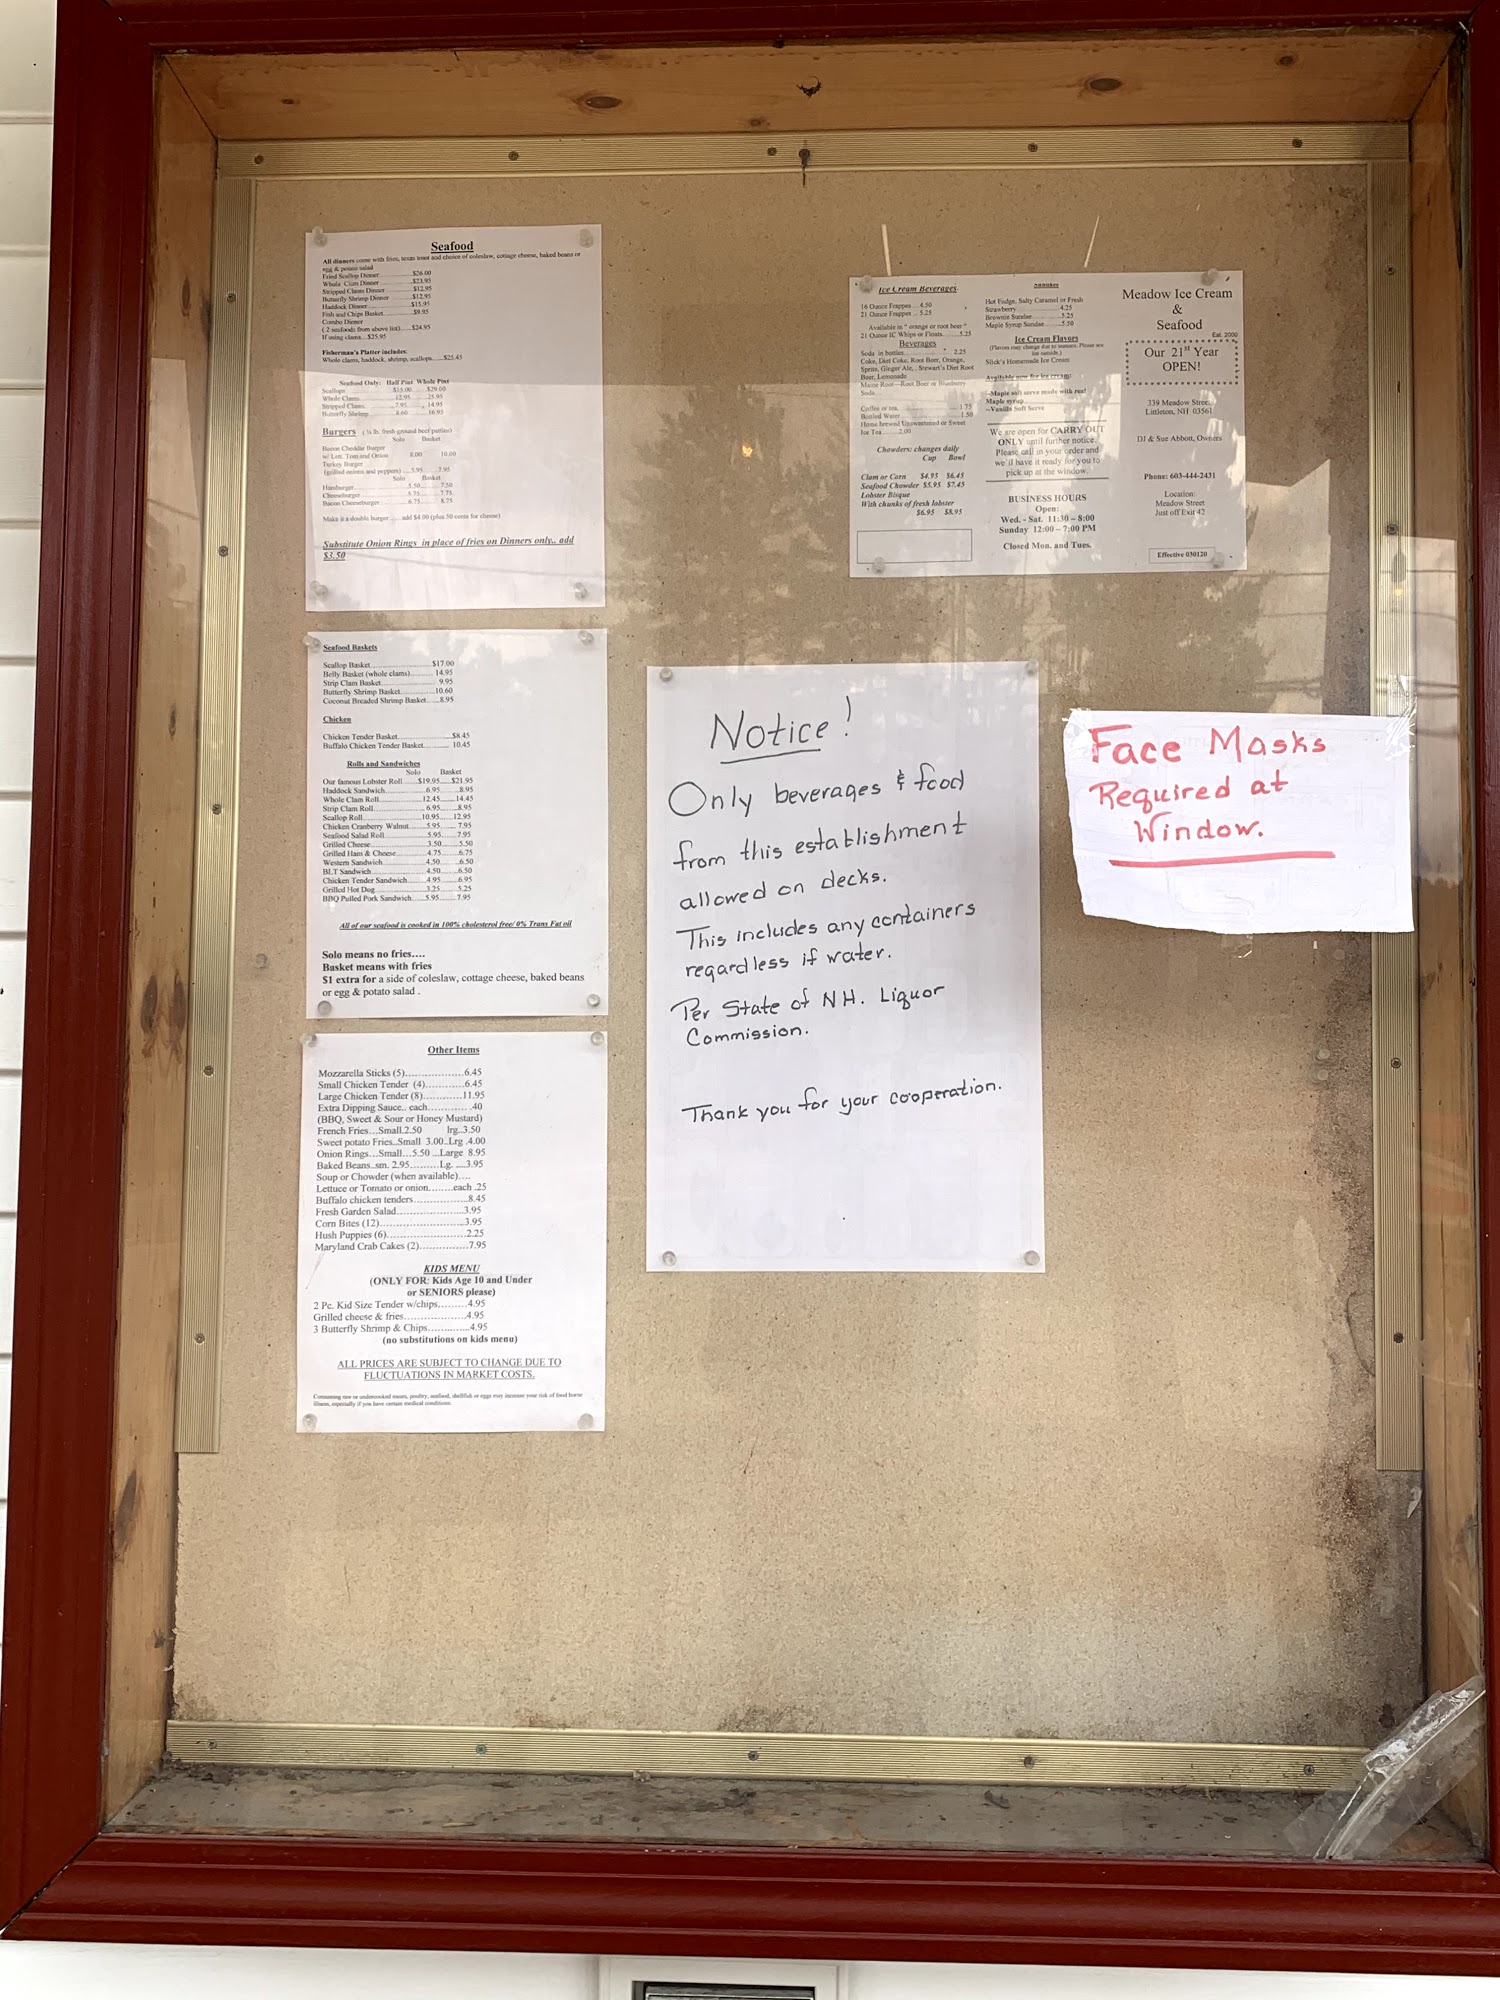 Seafood
All dinners come with fries, texas toast and choice of coleslaw, cottage cheese, baked beans or
egg & potato salad
Fried Scallop Dinner...............$26.00
Whole Clam Dinner...............$23.95
Stripped Clams Dinner............$12.95
Butterfly Shrimp Dinner..........$12.95
Haddock Dinner....................$15.95
Fish and Chips Basket............$9.95
Combo Dinner
( 2 seafoods from above list).....$24.95
If using clams...$25.95
Fisherman's Platter includes:
Whole clams, haddock, shrimp, scallops.....$25.45
Seafood Only: Half Pint Whole Pint
Scallops $15.00 $29.00
Whole Clams 12.95 25.95
Stripped Clams 7.95 14.95
Butterfly Shrimp 8.60 16.95
Burgers ( ¼ lb. fresh ground beef patties)
Solo Basket
Bacon Cheddar Burger
w/ Lett. Tom and Onion 8.00 10.00
Turkey Burger
(grilled onions and peppers) ....5.95 7.95
Solo Basket
Hamburger 5.50 7.50
Cheeseburger 5.75 7.75
Bacon Cheeseburger 6.75 8.75
Make it a double burger ......add $4.00 (plus 50 cents for cheese)
Substitute Onion Rings in place of fries on Dinners only.. add
$3.50
Seafood Baskets
Scallop Basket.......................$17.00
Belly Basket (whole clams)........... 14.95
Strip Clam Basket..................... 9.95
Butterfly Shrimp Basket............10.60
Coconut Breaded Shrimp Basket.....8.95
Chicken
Chicken Tender Basket....................$8.45
Buffalo Chicken Tender Basket........... 10.45
Rolls and Sandwiches
Solo Basket
Our famous Lobster Roll ......$19.95.....$21.95
Haddock Sandwich................ 6.95 ......8.95
Whole Clam Roll.................12.45 ......14.45
Strip Clam Roll................... 6.95........8.95
Scallop Roll.....................10.95......12.95
Chicken Cranberry Walnut.....5.95........7.95
Seafood Salad Roll............... 5.95........7.95
Grilled Cheese..................... 3.50 ........5.50
Grilled Ham & Cheese........... 4.75 .......6.75
Western Sandwich................ 4.50 .......6.50
BLT Sandwich..................... 4.50.......6.50
Chicken Tender Sandwich...... 4.95 ......6.95
Grilled Hot Dog................... 3.25 .......5.25
BBQ Pulled Pork Sandwich....5.95........7.95
All of our seafood is cooked in 100% cholesterol free/ 0% Trans Fat oil
Solo means no fries....
Basket means with fries
$1 extra for a side of coleslaw, cottage cheese, baked beans
or egg & potato salad .
Other Items
Mozzarella Sticks (5)....................6.45
Small Chicken Tender (4).............6.45
Large Chicken Tender (8).............11.95
Extra Dipping Sauce.. each..............40
(BBQ, Sweet & Sour or Honey Mustard)
French Fries...Small.2.50 lrg..3.50
Sweet potato Fries..Small 3.00..Lrg .4.00
Onion Rings...Small...5.50 ...Large 8.95
Baked Beans..sm. 2.95.........Lg. ....3.95
Soup or Chowder (when available)....
Lettuce or Tomato or onion........each .25
Buffalo chicken tenders..................8.45
Fresh Garden Salad......................3.95
Corn Bites (12)............................3.95
Hush Puppies (6)..........................2.25
Maryland Crab Cakes (2)................7.95
KIDS MENU
(ONLY FOR: Kids Age 10 and Under
or SENIORS please)
2 Pc. Kid Size Tender w/chips.........4.95
Grilled cheese & fries.....................4.95
3 Butterfly Shrimp & Chips..............4.95
(no substitutions on kids menu)
ALL PRICES ARE SUBJECT TO CHANGE DUE TO
FLUCTUATIONS IN MARKET COSTS.
Consuming raw or undercooked meats, poultry, seafood, shellfish or eggs may increase your risk of food borne
illness, especially if you have certain medical conditions.
Ice Cream Beverages
16 Ounce Frappes ....4.50
21 Ounce Frappes ... 5.25
Available in " orange or root beer "
21 Ounce IC Whips or Floats.......5.25
Beverages
Soda in bottles..................... 2.25
Coke, Diet Coke, Root Beer, Orange,
Sprite, Ginger Ale, . Stewart's Diet Root
Beer, Lemonade
Maine Root—Root Beer or Blueberry
Soda
Coffee or tea........................ 1.75
Bottled Water....................... 1.50
Home brewed Unsweetened or Sweet
Ice Tea .......2.00
Chowders: changes daily
Cup Bowl
Clam or Corn $4.95 $6.45
Seafood Chowder $5.95 $7.45
Lobster Bisque
With chunks of fresh lobster
$6.95 $8.95
Sundaes
Hot Fudge, Salty Caramel or Fresh
Strawberry ................. 4.25
Brownie Sundae..........5.25
Maple Syrup Sundae.....5.50
Ice Cream Flavors
(Flavors may change due to season. Please see
list outside.)
Slick's Homemade Ice Cream
Available now for ice cream:
-Maple soft serve made with real
Maple syrup
--Vanilla Soft Serve
We are open for CARRY OUT
ONLY until further notice.
Please call in your order and
we ll have it ready for you to
pick up at the window.
BUSINESS HOURS
Open:
Wed. - Sat. 11:30 – 8:00
Sunday 12:00 – 7:00 PM
Closed Mon. and Tues.
Meadow Ice Cream
&
Seafood
Est. 2000
Our 21st Year
OPEN!
339 Meadow Street
Littleton, NH 03561
DJ & Sue Abbott, Owners
Phone: 603-444-2431
Location:
Meadow Street
Just off Exit 42
Effective 030120
Notice!
Only beverages & food
from this establishment
allowed on decks.
This includes any containers
regardless if water.
Per State of NH. Liquor
Commission.
Thank you for your cooperation.
Face Masks
Required at
Window.